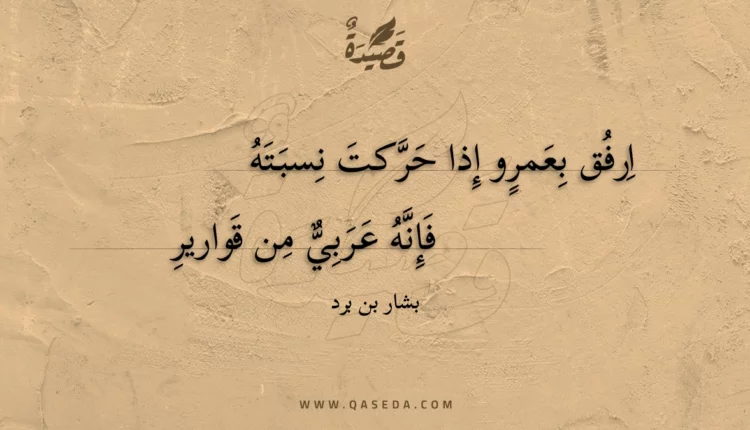 قَصِيدَةٌ
اِرفُق بِعَمرٍو إِذا حَرَّكتَ نِسبَتَهُ
فَإِنَّهُ عَرَبِيٌّ مِن قَواريرِ
بشار بن برد
WWW.QASEDA.COM